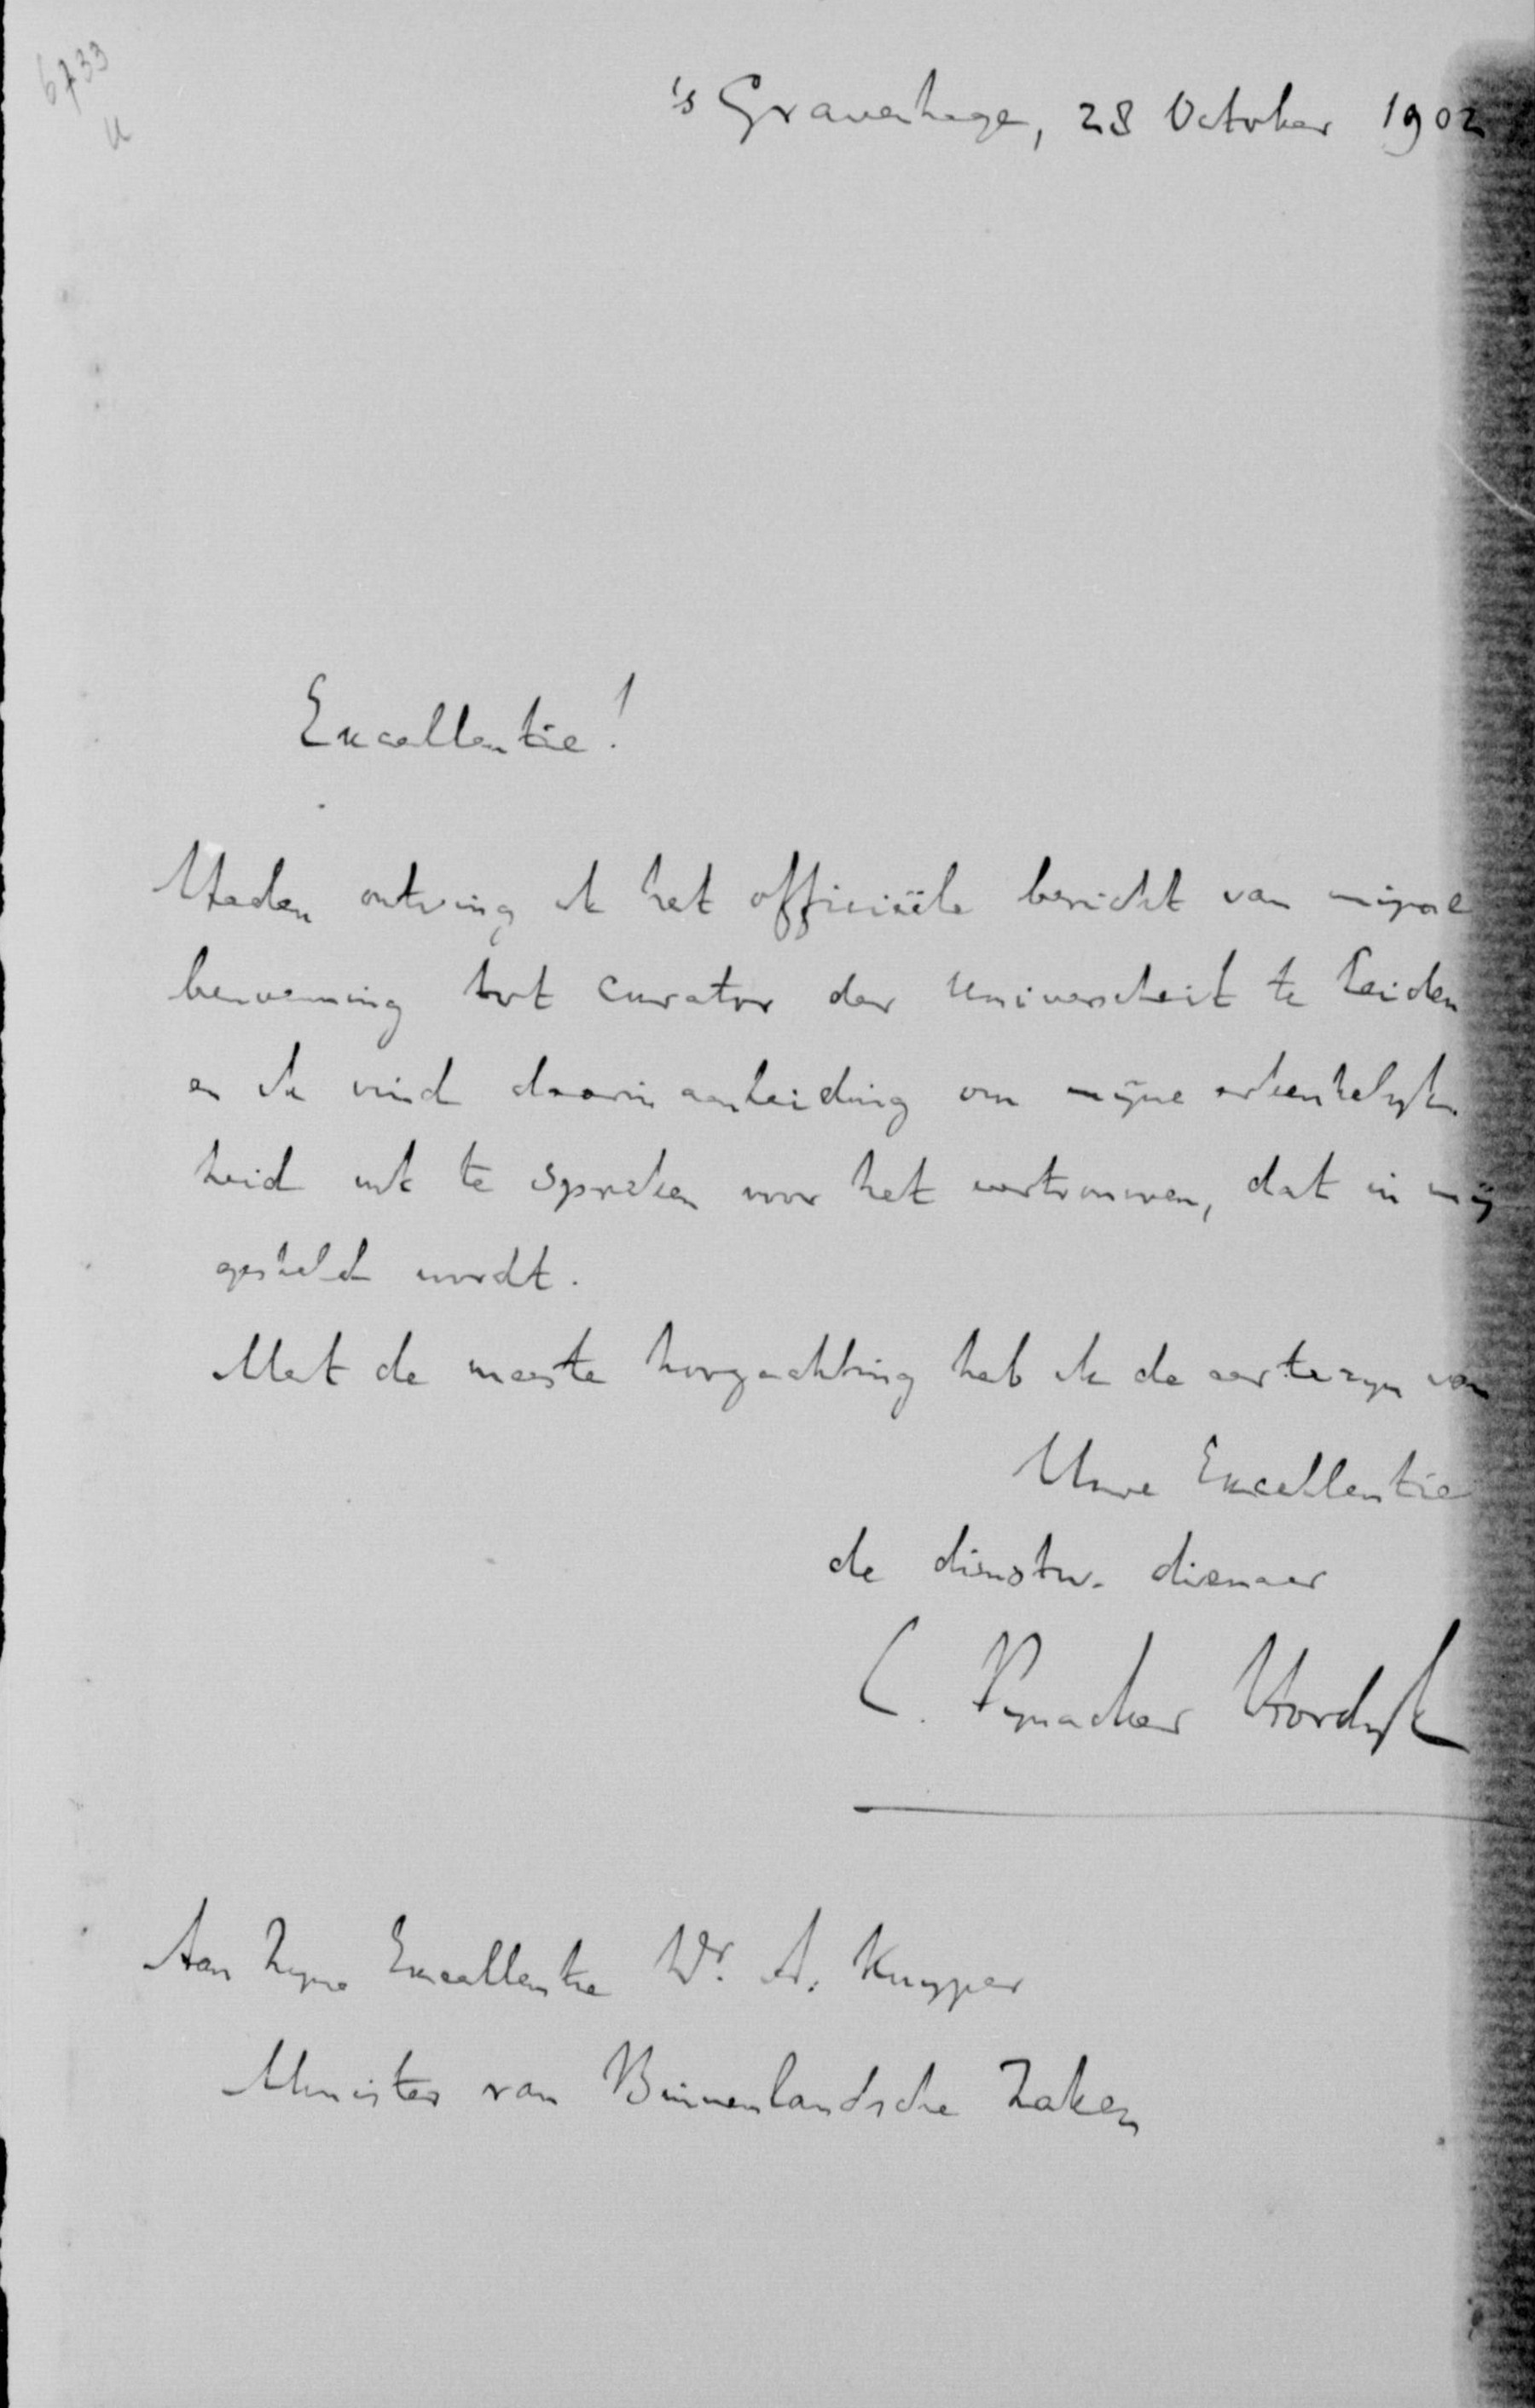 6733
u
's Gravenhage, 28 October 1902
Excellentie!
Heden ontving ik het officiëele bericht van mijne
benoeming tot curator der Universiteit te Leiden
en ik vind daarin aanleiding om mijne erkentelijk-
heid uit te spreken voor het vertrouwen, dat in mij
gesteld wordt.
Met de meeste hoogachting heb ik de eer te zijn van
Uwe Excellentie
de dienstw. dienaar
C. Pijnacker Hordijk
Aan Zijne Excellentie Dr. A. Kuyper
Minister van Binnenlandsche Zaken